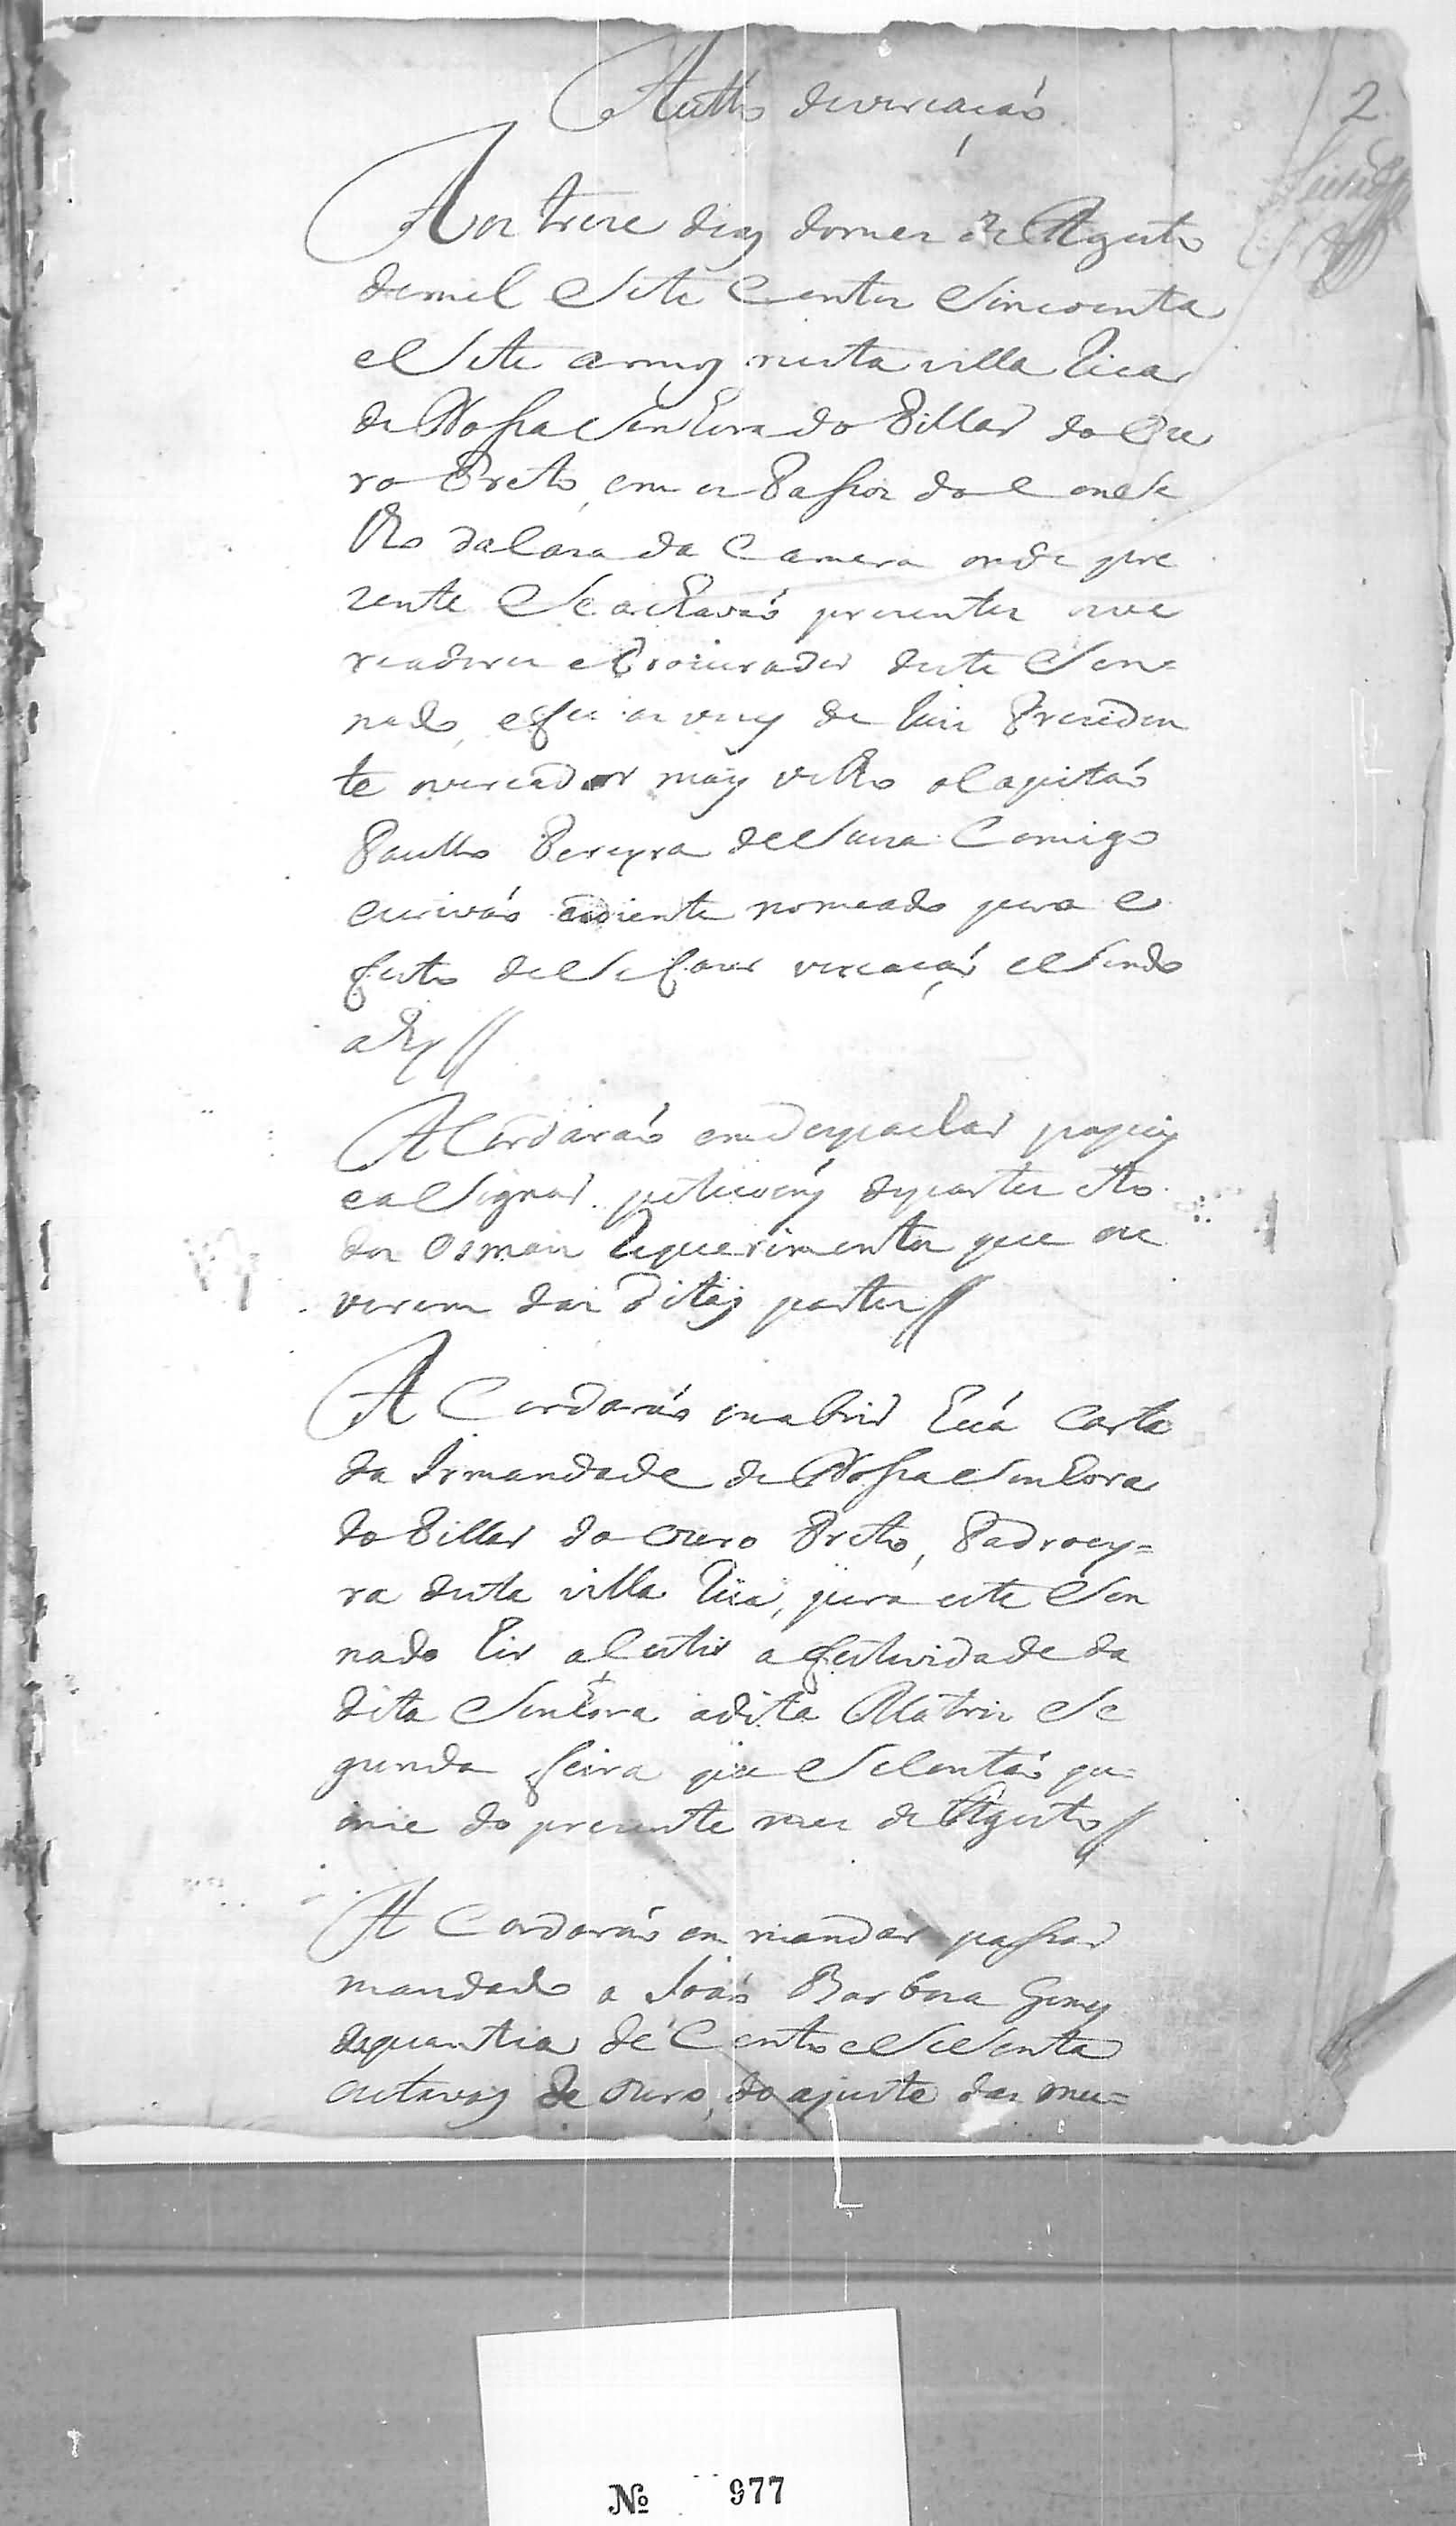 Autto de vereação
2
Aos treze dias do mes de Agosto
de mil e Sete Centos e Sincoenta
e Sete annos nesta villa Rica
de Nossa Senhora do Pillar do Ou
ro Preto, em os Passos do Conse
lho da Caza da Camera onde pre
zente Se achavão prezentes os ve
readores e Procurador deste Sen=
nado, e fes as vezes de Juis Prezidem
te o vereador mais velho o Capitão
Paullo Pereyra de Souza Comigo
escrivão ao diente nomeado para e
feito de Se fazer vereação e Sendo
ahy //
A Cordarão em despachar papeis
e aSignar petiçoens de partes e to
dos os mais Requerimentos que ou
verem das ditas partes //
A Cordarão em abrir huã carta
da Irmandade de Nossa Senhora
do Pillar do Ouro Preto, Padroey=
ra desta villa Rica, para este Sen
nado hir aSestir a festividade da
dita Senhora a dita Matriz Se
gunda feira que Se Contão qu=
inze do prezente mes de Agosto //
A Cordarão em mandar passar
mandado a João Barboza Gomes
da quantia de Cento e SeSenta
outavas de ouro, do ajuste das mu=
№ 977